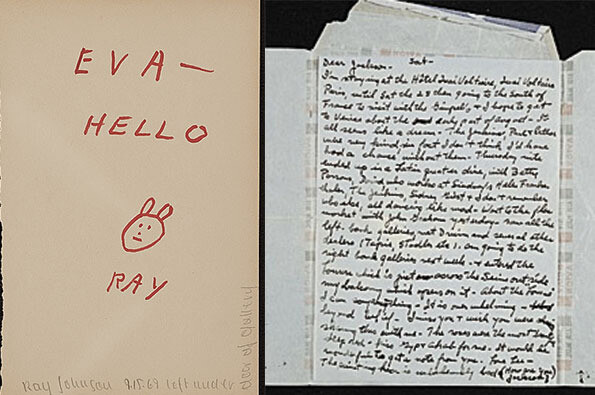 EVA—
HELLO
RAY
Ray Johnson 9.15.69 left under
door of Gallery
Dear Jackson - Sat -
I'm staying at the Hôtel Quai Voltaire, Quai Voltaire
Paris, until Sat the 28 then going to the South of
France to visit with the Gimpel's + I hope to get
to Venice about the early part of August - It
all seems like a dream - The Jenkins, Paul + Esther
were very kind, in fact I don't think I'd have
had a chance without them - Thursday nite
ended up in a Latin quarter dive, with Betty
Parsons, David who works at Sindney's, Helen Franken-
thaler, The Jenkins, Sidney + I don't remember
who else, all dancing like mad - Went to the flea
market with John Graham yesterday - saw all the
left bank galleries, met Drouin and several other
dealers (Tapié, Stadler etc). am going to do the
right bank galleries next week - + entered the
Louvre which is just across the Seine outside
my balcony which opens on it - About the Louvre
I can say anything - It is over whelming -
beyond belief - I miss you + wish you were
sharing this with me - The roses were the most beautiful
deep red - Kiss Gyp + Ahab for me - It would be
wonderful to get a note from you - Love Lee -
The painting here is unbelievably bad (How are you
Jackson?)